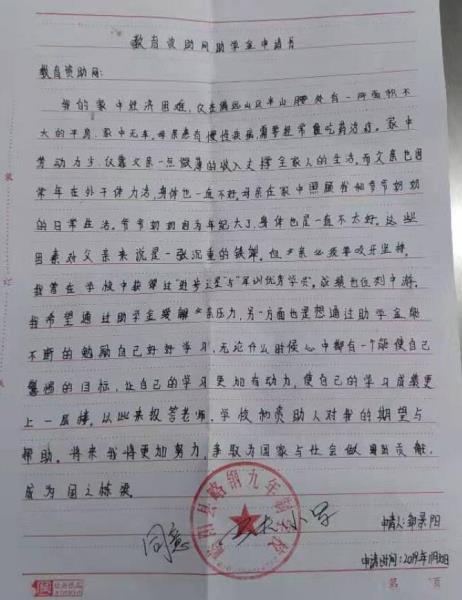 教育资助网助学金申请书
教育资助网:
我的家中经济困难,仅在偏远山区半山腰处有一所面积不
大的平房,家中无车,母亲患有慢性疾病,需要经常服吃药治疗。家中
劳动力少,仅靠父亲一点微薄的收入支撑全家人的生活,而父亲也因
常年在外干体力活,身体也一直不好,母亲在家中照顾我和爷爷奶奶
的日常生活,爷爷奶奶因为年纪大了,身体也是一直不太好。这些
因素对父亲来说是一张沉重的铁犁,但父亲必须要咬牙坚持。
我常在学校中获得过"进步之星"与"军训优秀学员",成绩也位列中游。
我希望通过助学金缓解父亲压力,另一方面也是想通过助学金能
不断的勉励自己好好学习,无论什么时候心中都有一个能使自己
警醒的目标,让自己的学习更加有动力,使自己的学习成绩更
上一层楼,以此来报答老师、学校和资助人对我的期望与
帮助。将来我将更加努力,争取为国家与社会做出贡献,
成为国之栋梁。
略阳县略钢九年制学校
同意
申请人:郭景阳
申请时间:2019年11月
第 页